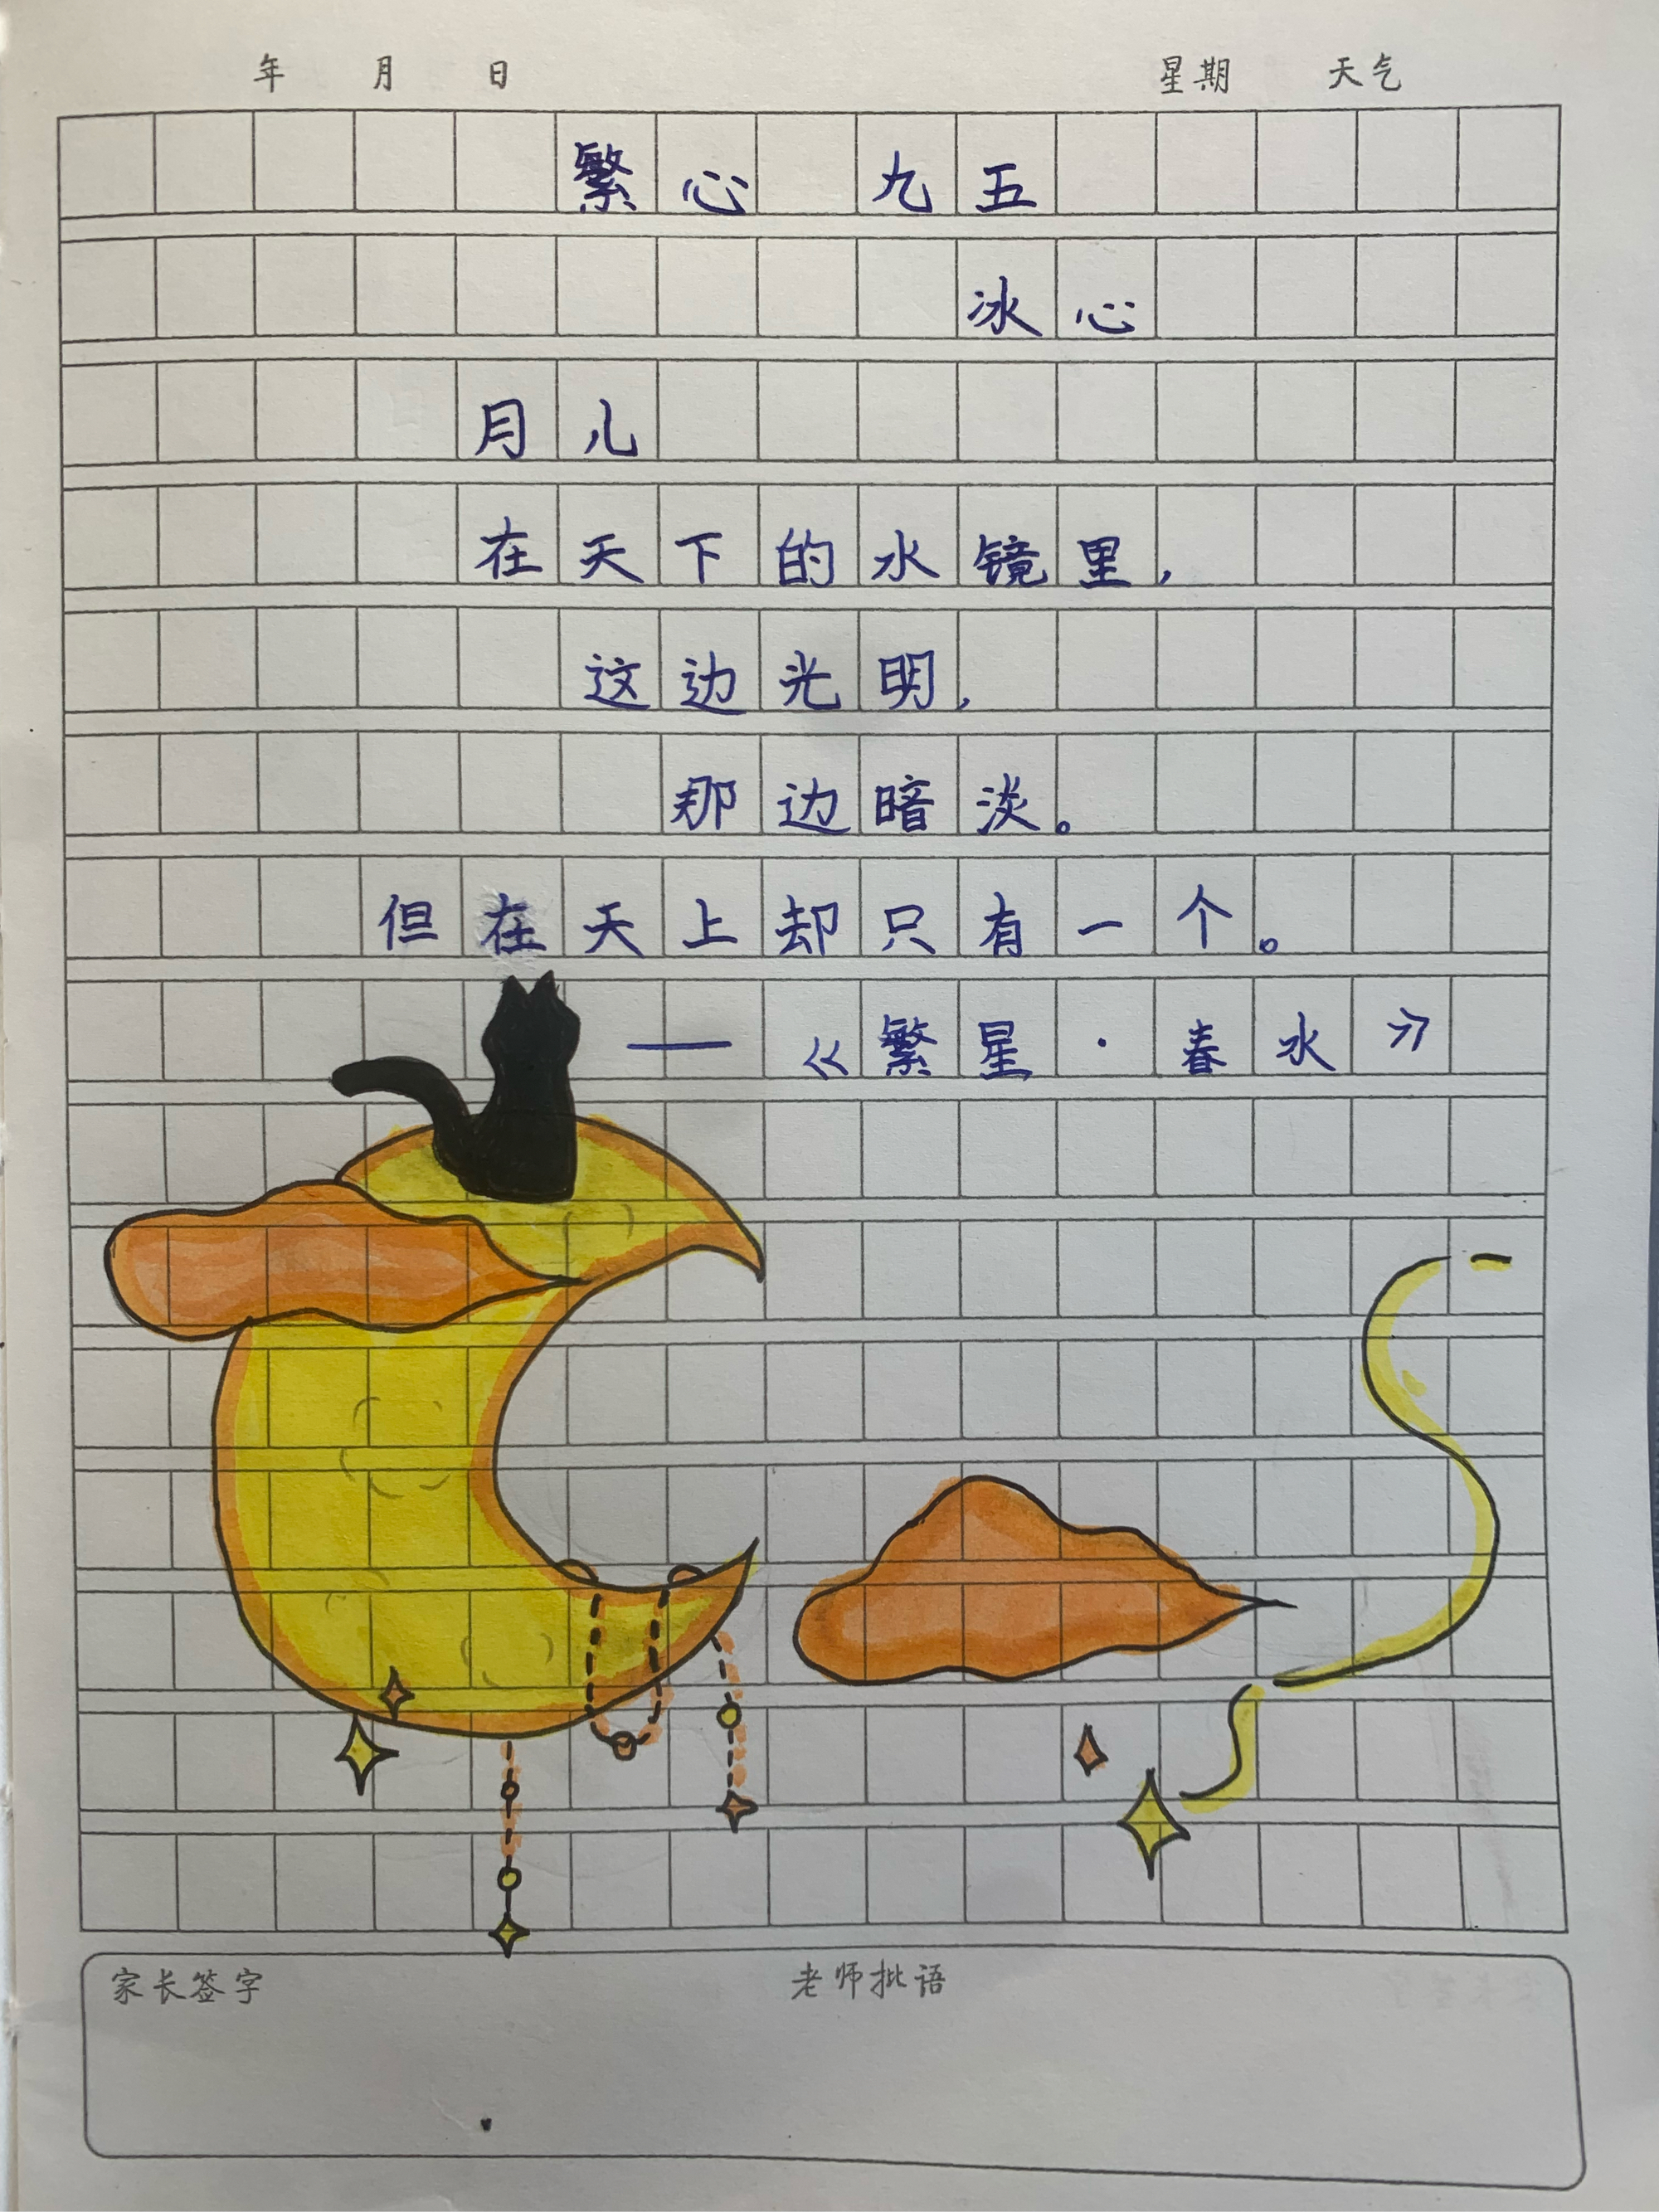 年 月 日 星期 天气
繁心 九五
冰心
月儿
在天下的水镜里，
这边光明，
那边暗淡。
但在天上却只有一个。
——《繁星·春水》
家长签字 老师批语